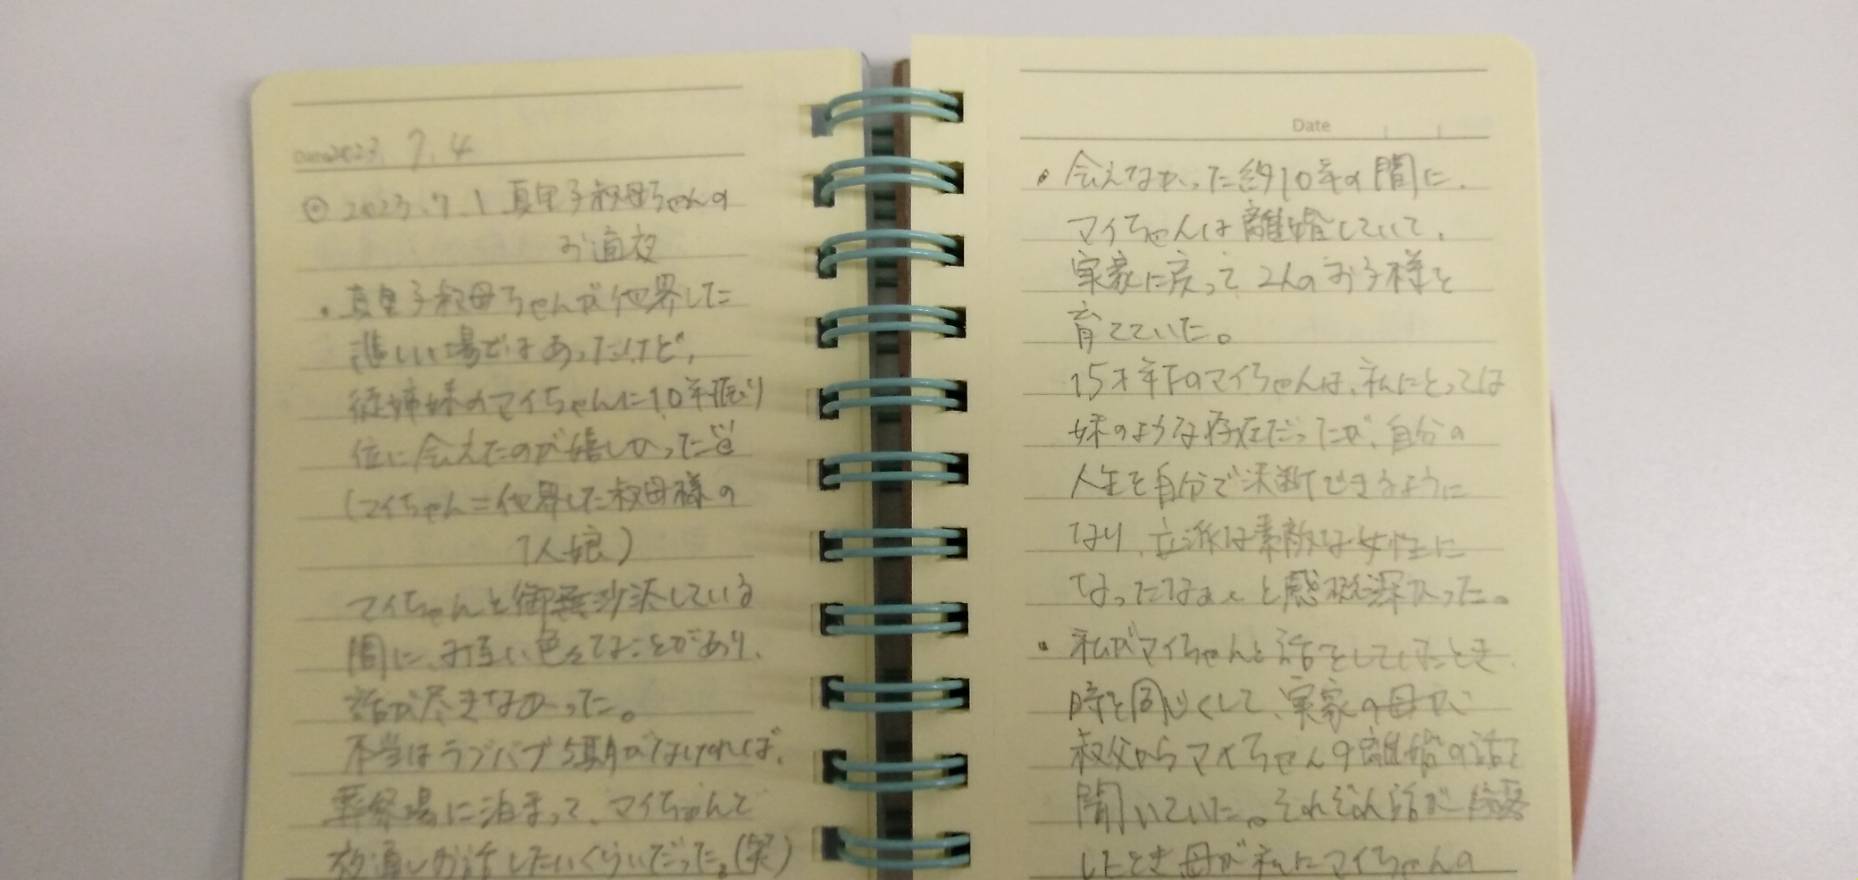 Date 2023. 7. 4
◎ 2023.7.1 真里子叔母ちゃんの
お通夜
・真里子叔母ちゃんが他界した
悲しい場ではあったけど、
従姉妹のマイちゃんに10年振り
位に会えたのが嬉しかった
(マイちゃん=他界した叔母様の
1人娘)
マイちゃんと御無沙汰している
間に、お互い色々なことがあり、
話が尽きなかった。
本当はラブバブ5期がなければ、
葬祭場に泊まって、マイちゃんと
夜通しお話したいくらいだった。(笑)
Date
・会えなかった約10年の間に、
マイちゃんは離婚していて、
実家に戻って2人のお子様を
育てていた。
15才年下のマイちゃんは、私にとっては
妹のような存在だったが、自分の
人生を自分で決断できるように
なり、立派な素敵な女性に
なったなぁと感慨深かった。
・私がマイちゃんと話をしていたとき、
時を同じくして、実家の母が
叔父からマイちゃんの離婚の話を
聞いていた。それぞれ話が
したとき母が私にマイちゃんの